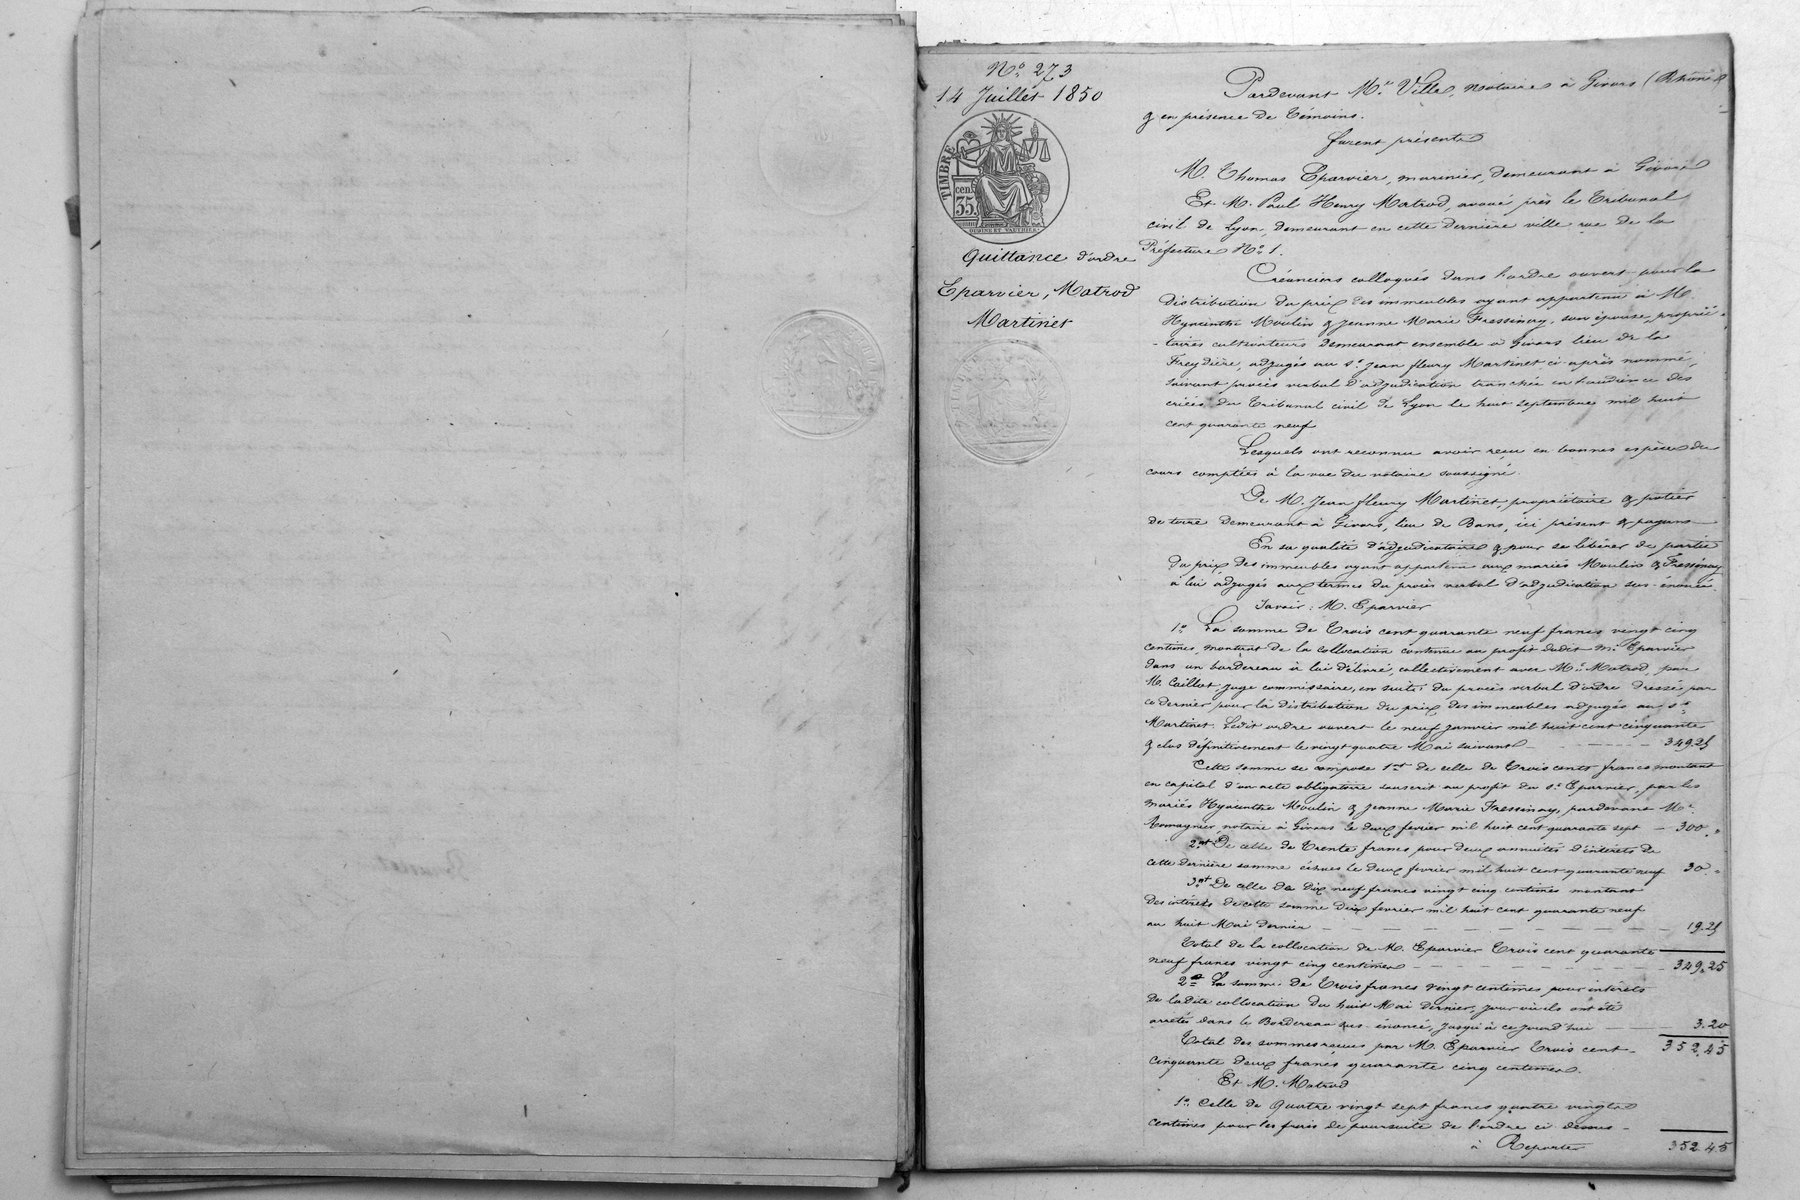 N° 273
14 Juillet 1850
TIMBRE
cen.
35.
Quittance d'ordre
Eparvier, Matrod
Martinet
Pardevant Me Ville, notaire à Givors (Rhône)
& en présence de témoins.
furent présents
M. Thomas Eparvier, marinier, demeurant à Givors
Et M. Paul Henry Matrod, avoué près le Tribunal
civil de Lyon, demeurant en cette dernière ville rue de la
Préfecture N° 1.
Créanciers colloqués dans l'ordre ouvert pour la
distribution du prix des immeubles ayant appartenu à M.
Hyacinthe Moulin & Jeanne Marie Fressinay, son épouse, proprié-
-taires cultivateurs demeurant ensemble à Givors lieu de la
Freydière, adjugés au s. Jean fleury Martinet ci-après nommé,
suivant procès verbal d'adjudication tranchée en l'audience des
criées du Tribunal civil de Lyon le huit septembre mil huit
cent quarante neuf
Lesquels ont reconnu avoir reçu en bonnes espèces du
cours comptées à la vue du notaire soussigné.
De M. Jean fleury Martinet, propriétaire & potier
de terre demeurant à Givors, lieu de Bans, ici présent & payant
En sa qualité d'adjudicataire & pour se libérer de partie
du prix des immeubles ayant appartenu aux mariés Moulin & Fressinay
à lui adjugés aux termes du procès verbal d'adjudication sus-énoncé.
Savoir : M. Eparvier
1° La somme de Trois cent quarante neuf francs vingt cinq
centimes, montant de la collocation contenue au profit dudit M. Eparvier
dans un bordereau à lui délivré, collectivement avec Me Matrod, par
M. Caillot, juge commissaire, en suite du procès verbal d'ordre dressé par
ce dernier pour la distribution du prix des immeubles adjugés au s.
Martinet. Ledit ordre ouvert le neuf janvier mil huit cent cinquante
& clos définitivement le vingt quatre Mai suivant 349.25
Cette somme se compose 1nt de celle de Trois cents francs montant
en capital d'un acte obligatoire souscrit au profit du s. Eparvier, par les
mariés Hyacinthe Moulin & Jeanne Marie Fressinay, pardevant Me
notaire à Givors le deux fevrier mil huit cent quarante sept 300 "
2nt De celle de Trente francs pour deux annuités d'intérêts de
cette dernière somme échues le deux fevrier mil huit cent quarante neuf 30 "
3nt De celle de Dix neuf francs vingt cinq centimes montant
des intérêts de cette somme deux fevrier mil huit cent quarante neuf
au huit Mai dernier 19.25
Total de la collocation de M. Eparvier Trois cent quarante
neuf francs vingt cinq centimes 349.25
2° La somme de Trois francs vingt centimes pour intérêts
de ladite collocation du huit Mai dernier, jour où ils ont été
arretés dans le Bordereau sus-énoncé, jusqu'à ce jourd'hui 3.20
Total des sommes reçues par M. Eparvier Trois cent 352.45
cinquante deux francs quarante cinq centimes.
Et M. Matrod
1° Celle de Quatre vingt sept francs quatre vingts
centimes pour les frais de poursuite de l'ordre ci-dessus
à Reporter 352.45